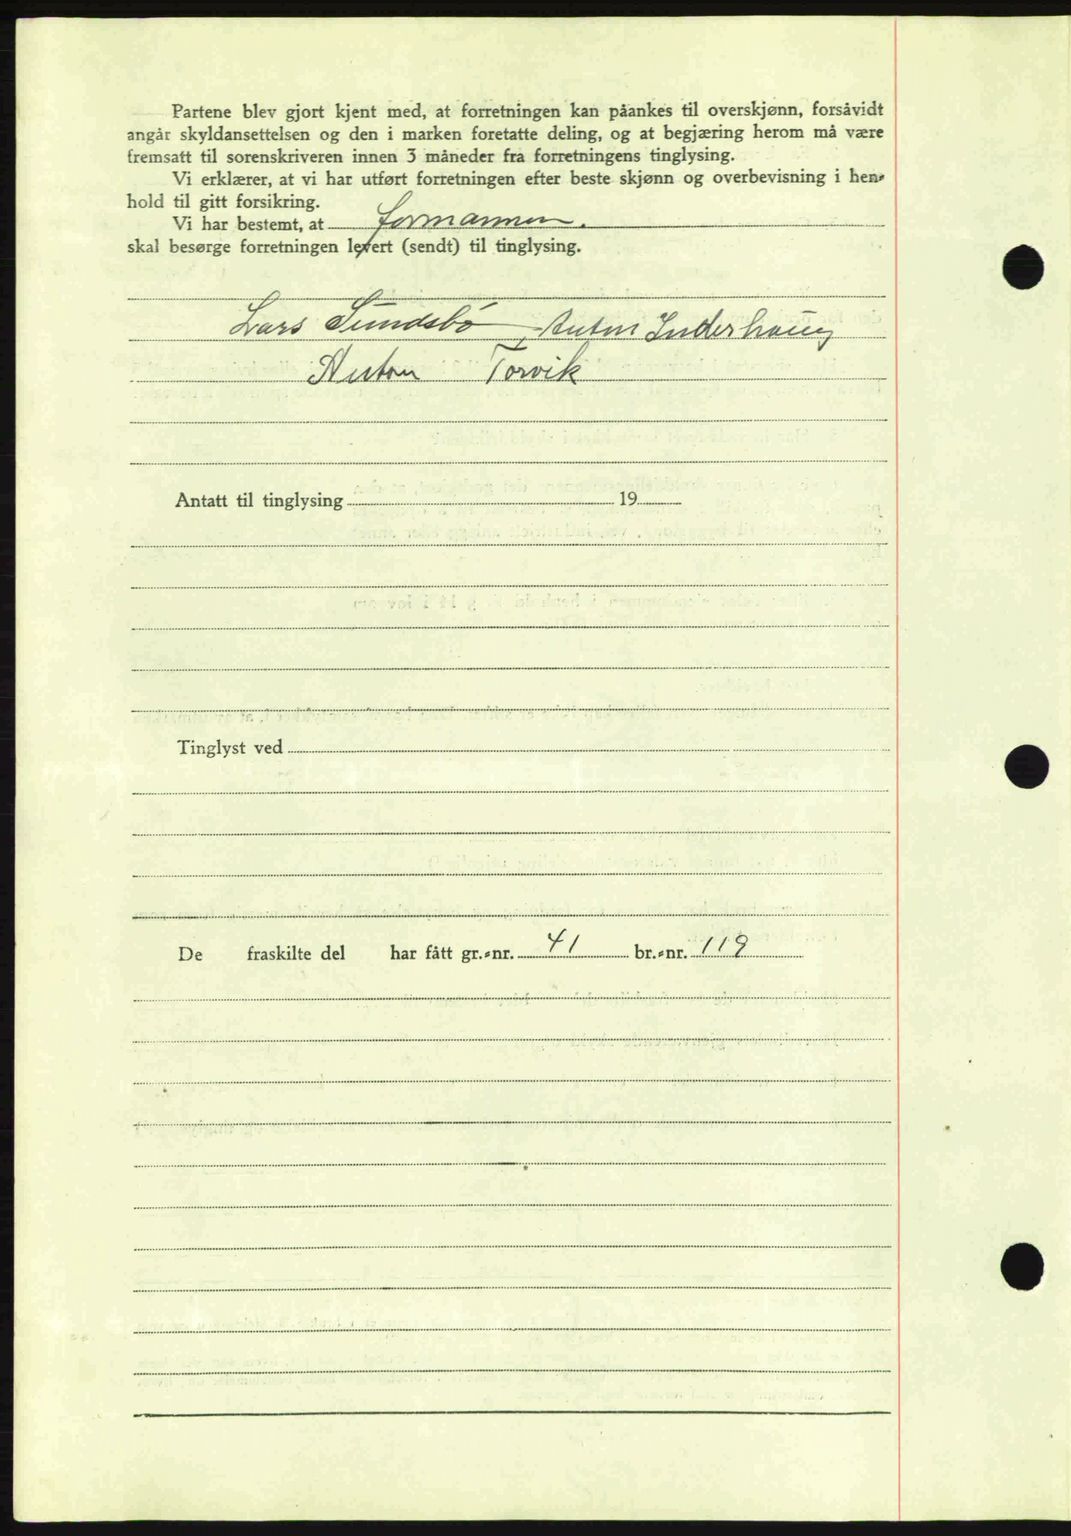 Partene blev gjort kjent med, at forretningen kan påankes til overskjønn, forsåvidt
angår skyldansettelsen og den i marken foretatte deling, og at begjæring herom må være
fremsatt til sorenskriveren innen 3 måneder fra forretningens tinglysing.
Vi erklærer, at vi har utført forretningen efter beste skjønn og overbevisning i hen-
hold til gitt forsikring.
Vi har bestemt, at formannen.
skal besørge forretningen levert (sendt) til tinglysing.
Lars Sundsbö Anton Inderhaug
Anton Torvik
Antatt til tinglysing 19
Tinglyst ved
De fraskilte del har fått gr.-nr. 41 br.-nr. 119